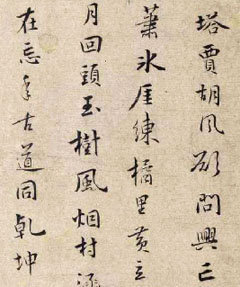 塔賈胡風欲問興亡
冰厓練橘里黃立
月回頭玉樹風烟村
在忘年古道同乾坤